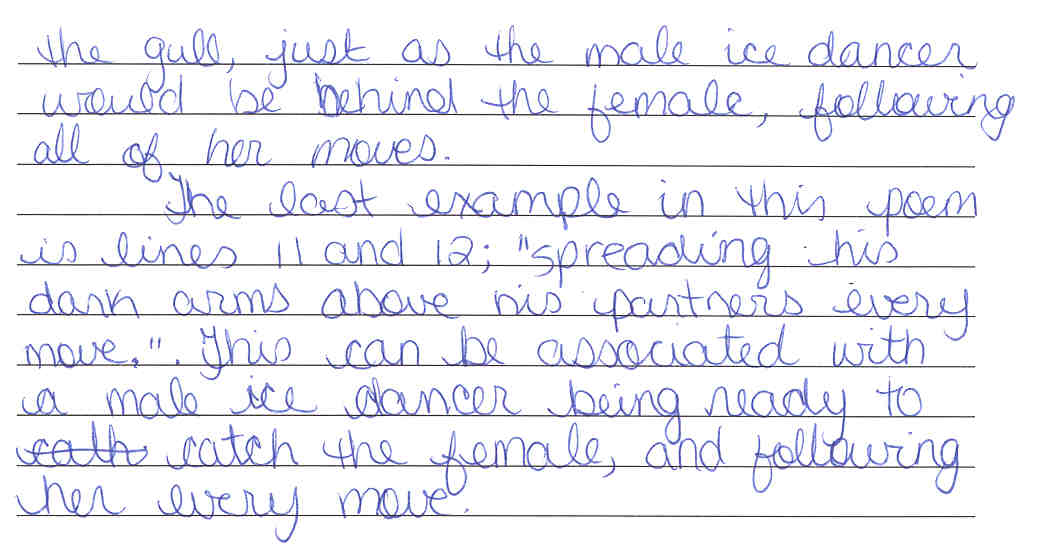 the gull, just as the male ice dancer
would be behind the female, following
all of her moves.
The last example in this poem
is lines 11 and 12; "spreading his
dark arms above his partners every
move.". This can be associated with
a male ice dancer being ready to
cath catch the female, and following
her every move.